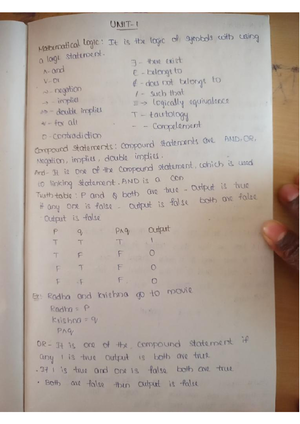 UNIT-1
Mathematical logic: It is the logic of symbols with using
a logic statement.
∧-and ∃ - there exist
∨-or ∈ - belongs to
~ - negation ∉ - does not belongs to
→ - implies / - such that
↔ - double implies ⇔ - logically equivalence
∀ - for all T - tautology
O - Contradiction - - Complement
Compound statements: Compound statements are AND, OR,
Negation, implies, double implies.
And: It is one of the Compound statement which is used
Joining statement. AND is a Con
Truth table: P and q both are true. Output is true
if any one is false. Output is false both are false
Output is false
P q P∧q Output
T T T 1
T F F 0
F T F 0
F F F 0
Eg: Radha and krishna go to movie
Radha = P
krishna = q
P∧q
OR - It is one of the compound statement if
any 1 is true output is both are true
- If 1 is true and one is false both are true
- Both are false then output is false